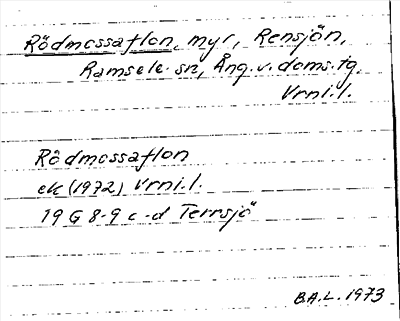 Rödmossaflon, myr, Rensjön,
Ramsele sn, Ång. v. doms. tg.
Vrni.l.
Rödmossaflon
ek (1972) Vrni.l.
19 G 8-9 c-d Terrsjö
B.A.L. 1973